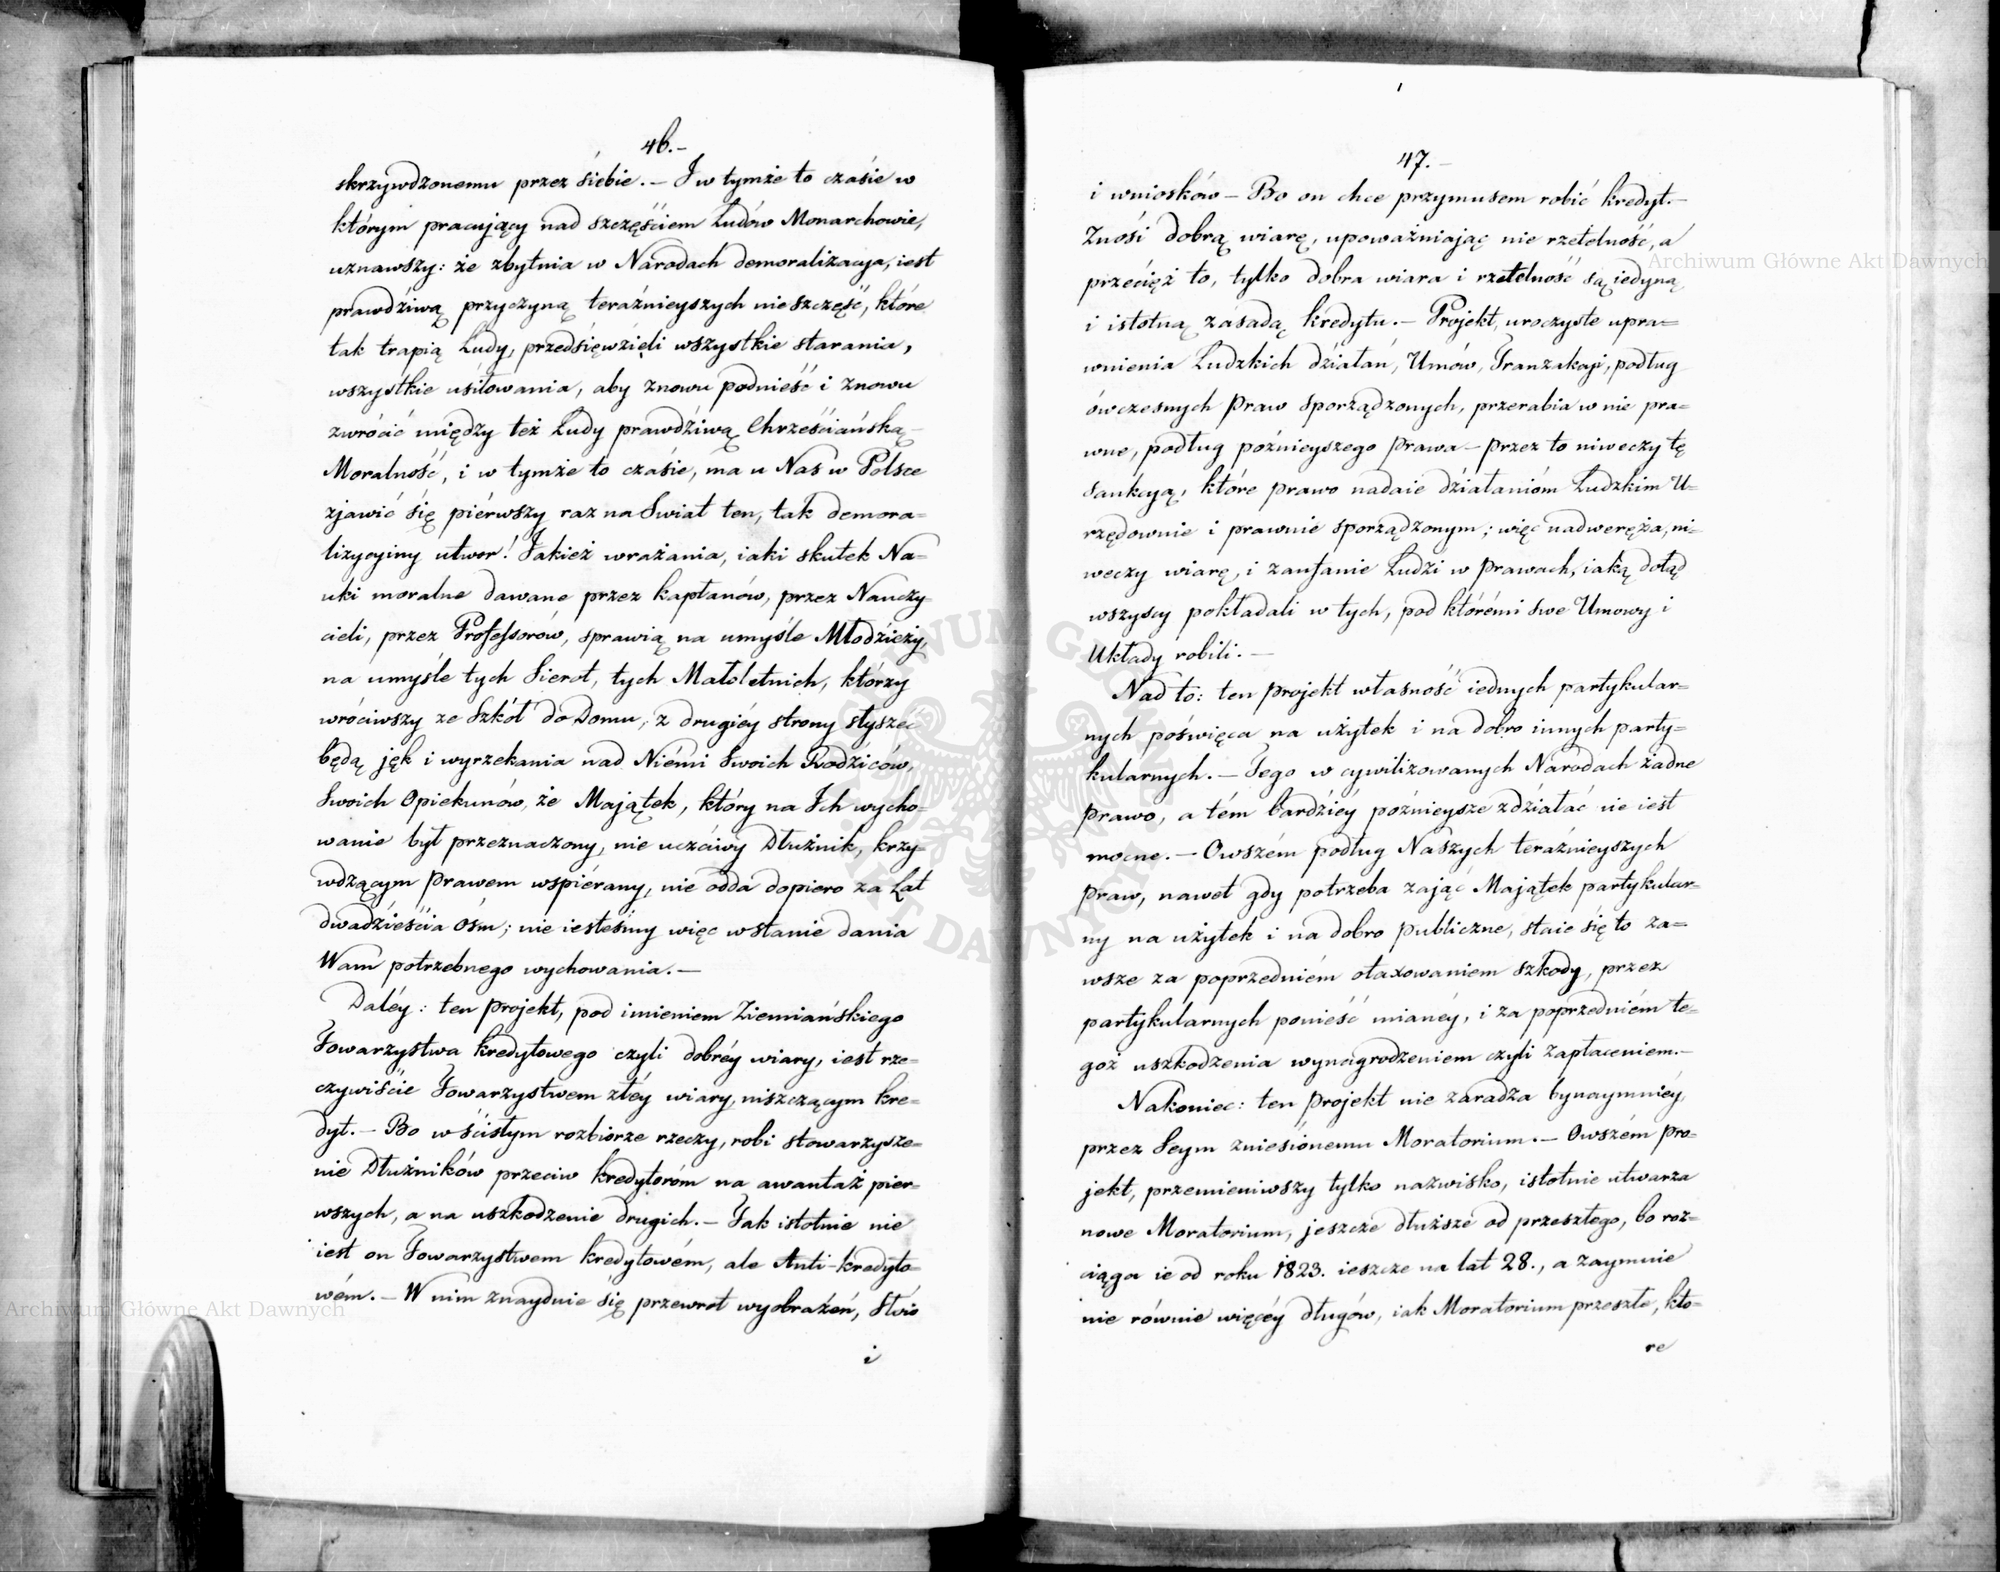 46.-
skrzywdzonemu przez siebie.- I w tymże to czásie w
którym pracujący nad szczęściem Ludów Monarchowie,
uznawszy: że zbytnia w Narodach demoralizacya, iest
prawdziwą przyczyną teraźnieyszych nieszczęść, które
tak trapią Ludy, przedsięwzięli wszystkie starania,
wszystkie usiłowania, aby znowu podnieść i znowu
zwrócić między też Ludy prawdziwą Chrześciańską
Moralność, i w tymże to czásie, ma u Nas w Polsce
zjawić się piérwszy raz na Swiat ten, tak demora=
lizycyiny utwor! Jakież wrażania, iaki skutek Na=
uki moralne dawane przez kapłanów, przez Nauczy=
cieli, przez Professorów, sprawią na umyśle Młodzieży,
na umyśle tych Sierot, tych Małoletnich, którzy
wróciwszy ze Szkół do Domu, z drugiéy strony słyszéć
będą jęk i wyrzekania nad Niémi Swoich Rodziców,
Swoich Opiekunów, że Majątek, który na Ich wycho=
wanie był przeznaczony, nie uczciwy Dłużnik, krzy=
wdzącym Prawem wspiérany, nie odda dopiero za Lat
dwadzieścia ośm; nie iesteśmy więc w stanie dania
Wam potrzebnego wychowania.-
Daléy: ten Projekt, pod imieniem Ziemiańskiego
Towarzystwa kredytowego czyli dobréy wiary, iest rze=
czywiście Towarzystwem złéy wiary, niszczącym kre=
dyt.- Bo w ścisłym rozbiorze rzeczy, robi stowarzysze=
nie Dłużników przeciw kredytoróm na awantaż pier=
wszych, a na uszkodzenie drugich.- Tak istotnie nie
iest on Towarzystwem kredytowém, ale Anti-kredyto=
wém.- W nim znayduie się przewrot wyobrażeń, Słów
i
47.-
i wniosków - Bo on chce przymusem robić kredyt.-
Znosi dobrą wiarę, upoważniając nie rzetelność, a
przecięż to, tylko dobra wiara i rzetelność są iedyną
i istotną zásadą kredytu.- Projekt, uroczyste upra=
wnienia Ludzkich działań, Umów, Tranzakcyi, podług
ówczesnych Praw sporządzonych, przerabia w nie pra=
wne, podług poźnieyszego Prawa - przez to niweczy tę
sankcyą, które prawo nadaie działanióm Ludzkim U=
rzędownie i prawnie sporządzonym; więc nadweręża, ni=
weczy wiarę, i zaufanie Ludzi w Prawach, iaką dotąd
wszyscy pokładali w tych, pod któremi swe Umowy i
Układy robili.-
Nad to: ten Projekt własność iednych partykular=
nych poświęca na użytek i na dobro innych party=
kularnych.- Tego w cywilizowanych Narodach żadne
Prawo, a tém bardziéy poźnieysze zdziałać nie iest
mocne.- Owszém podług Naszych teraźnieyszych
Praw, nawet gdy potrzeba zająć Majątek partykular=
ny na użytek i na dobro publiczne, staie się to za=
wsze za poprzedniém otaxowaniem szkody, przez
partykularnych ponieść mianéy, i za poprzedniém te=
goż uszkodzenia wynagrodzeniem czyli zapłaceniem.-
Nakoniec: ten Projekt nie zaradza bynaymniéy,
przez Seym zniesionemu Moratorium.- Owszém Pro=
jekt, przemieniwszy tylko nazwisko, istotnie utwarza
nowe Moratorium, jeszcze dłuższe od przeszłego, bo roz=
ciąga ie od roku 1823. ieszcze na lat 28., a zaymuie
nie równie więcéy długów, iak Moratorium przeszłe, któ=
re
Archiwum Główne Akt Dawnych
Archiwum Główne Akt Dawnych
ARCHIWUM GŁÓWNE AKT DAWNYCH